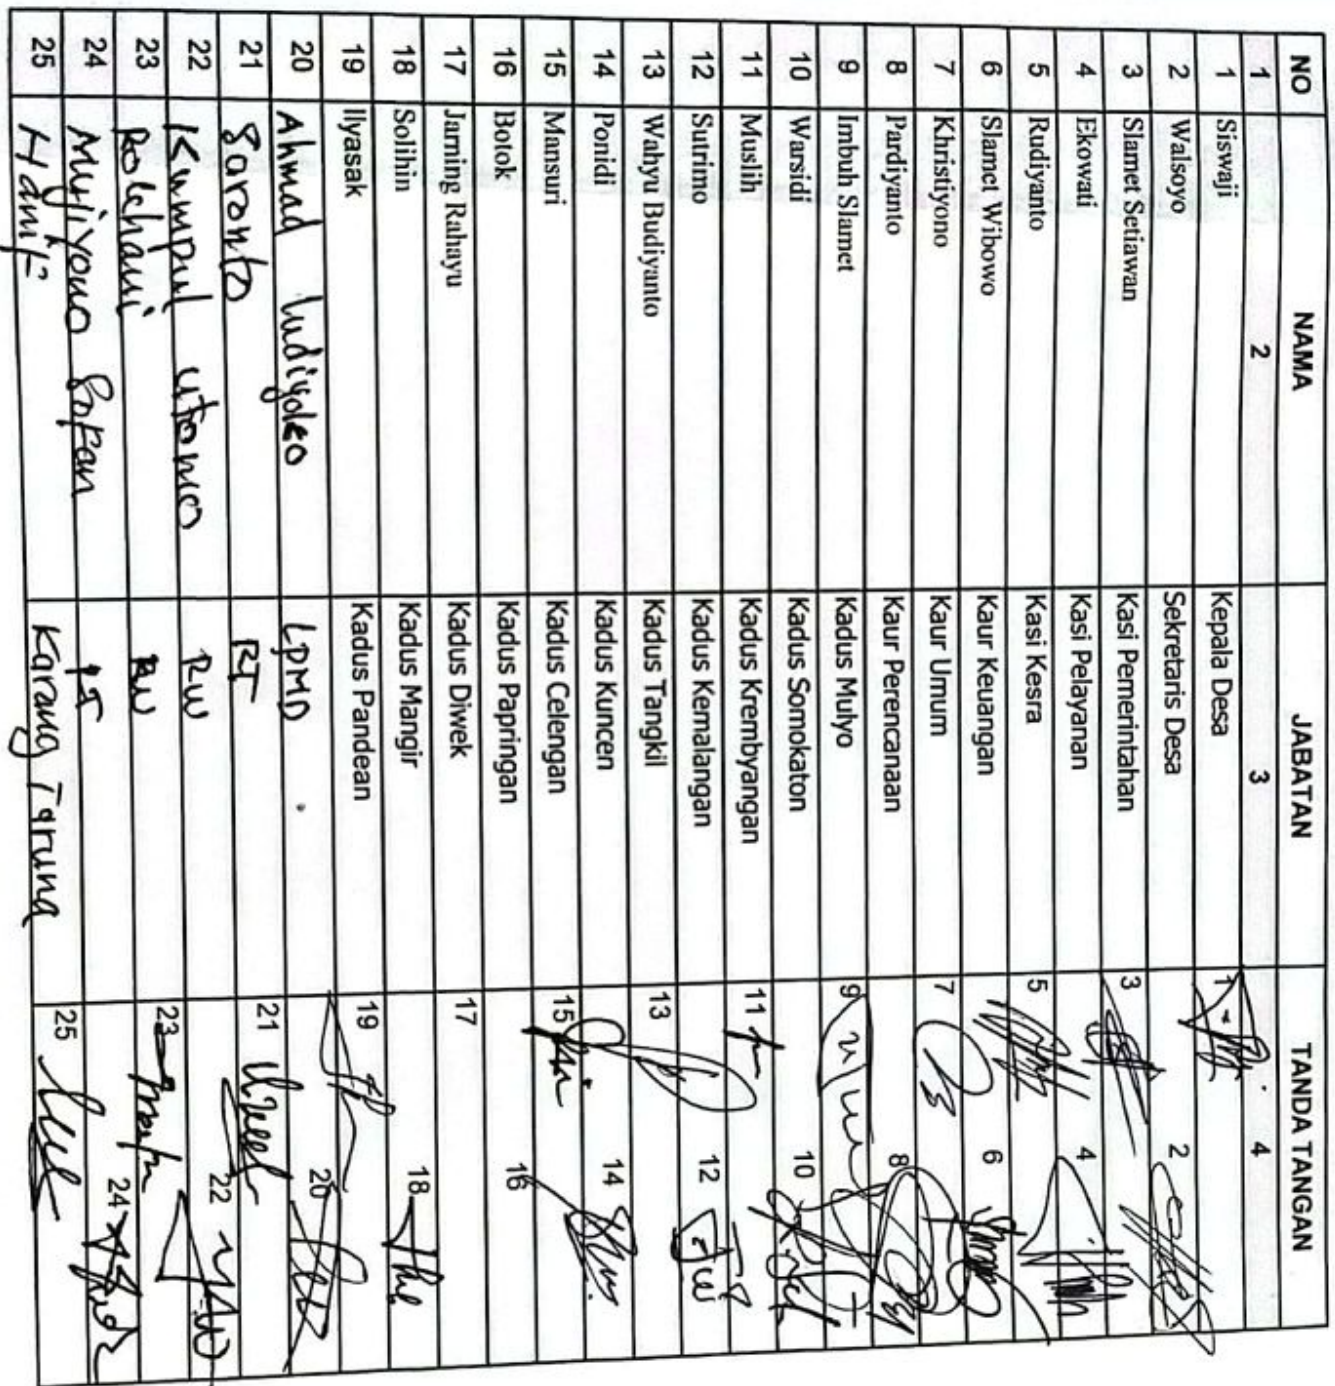 NO NAMA JABATAN TANDA TANGAN
1 2 3 4
1 Siswaji Kepala Desa 1
2 Walsoyo Sekretaris Desa 2
3 Slamet Setiawan Kasi Pemerintahan 3
4 Ekowati Kasi Pelayanan 4
5 Rudiyanto Kasi Kesra 5
6 Slamet Wibowo Kaur Keuangan 6
7 Khristiyono Kaur Umum 7
8 Pardiyanto Kaur Perencanaan 8
9 Imbuh Slamet Kadus Mulyo 9
10 Warsidi Kadus Somokaton 10
11 Muslih Kadus Krembyangan 11
12 Sutrimo Kadus Kemalangan 12
13 Wahyu Budiyanto Kadus Tangkil 13
14 Ponidi Kadus Kuncen 14
15 Mansuri Kadus Celengan 15
16 Botok Kadus Papringan 16
17 Jaming Rahayu Kadus Diwek 17
18 Solihin Kadus Mangir 18
19 Ilyasak Kadus Pandean 19
20 Ahmad LPMD 20
21 Saronto RT 21
22 Kumpul Utomo RW 22
23 Rolehani RW 23
24 Mujiyono Sopan RT 24
25 Hanif Karang Taruna 25